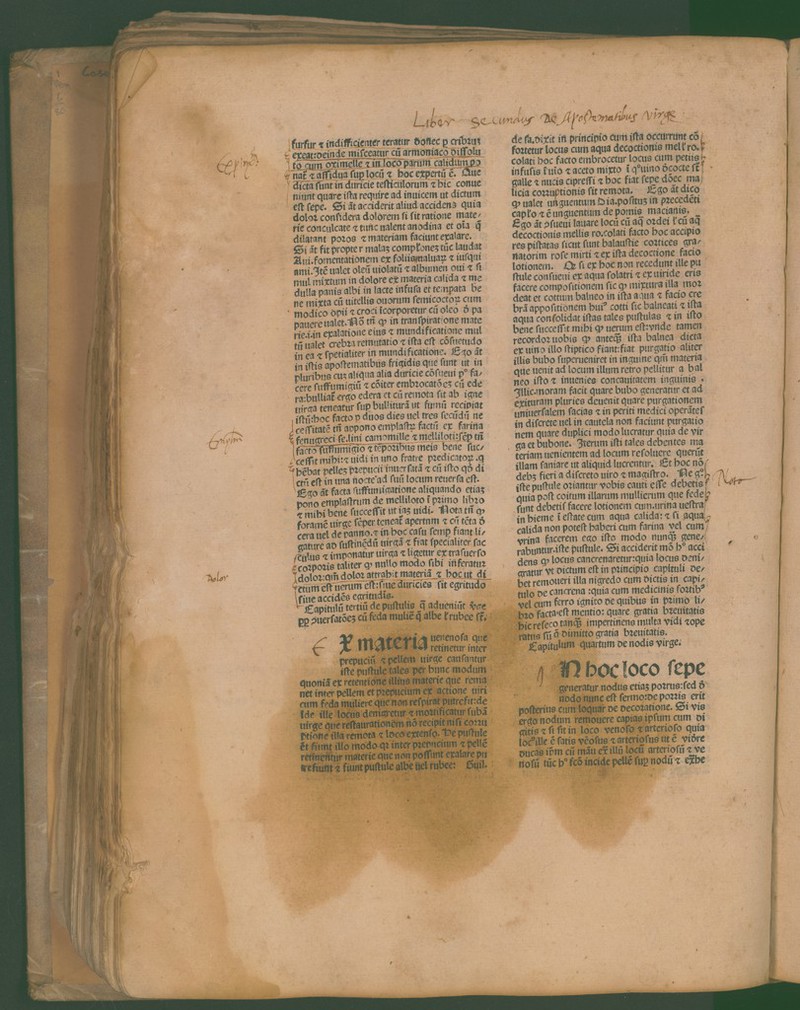 Liber secundus De Apostematibus virge
furfur ⁊ indifficienter teratur donec ꝑ cribrum
exeat: deinde misceatur cū armoniaco dissolu
to cum oximelle ⁊ in loco parum calidum po
nat̄ ⁊ assidua sup locū ⁊ hoc expertū ē. Que
dicta sunt in duricie testiculorum ⁊ hic conue
niunt quare ista require ad inuicem ut dictum
est sepe. Si āt acciderit aliud accidens quia
dolor considera dolorem si sit ratione mate/
rie conculcate ⁊ tunc ualent anodina et oīa q̄
dilatant poros ⁊ materiam faciunt exalare.
Si āt fit propter malaz complōnez tūc laudat
Aui. fomentationem ex foliis maluarum ⁊ iusqui
ami. Itē ualet oleū uiolatū ⁊ albumen oui ⁊ si
mul mixtum in dolore ex materia calida ⁊ me
dulla panis albi in lacte infusa et tempata be
ne mixta cū uitellis ouorum semicoctorum cum
modico opii ⁊ croci Icorporetur cū oleo d̄ pa
pauere ualet. Nō tn̄ ꝙ in transpiratione mate
rie .i. in exalatione eius ⁊ mundificatione mul
tū ualet crebra remutatio ⁊ ista est cōsuetudo
in ea ⁊ spetialiter in mundificatione. Ego āt
in istis apostematibus frigidis que sunt ut in
pluribus cum aliqua alia duricie cōsueui pᵒ fa/
cere suffumigiū ⁊ cōiter embrocatōes cū ede
ra: bulliat ergo edera et cū remota sit ab igne
uirga teneatur sup bullituram ut fumū recipiat
istū: hoc facto ꝑ duos dies uel tres secūdū ne
cessitatē tn̄ appono emplastrum factū ex farina
fenugreci se. lini camomille ⁊ melliloti: sep̄ tn̄
facto suffumigio ⁊ tēporibus meis bene suc/
cessit mihi: ⁊ uidi in uno fratre predicatorum .q.
hēbat pellez prepucii inuersatā ⁊ cū isto qd̄ di
ctū est in una nocte ad suū locum reuersa est.
Ego āt facta suffumigatione aliquando etiaz
pono emplastrum de melliloto I primo libro
⁊ mihi bene successit ut iaz uidi. Nota tn̄ ꝙ
foramē uirge sēper teneat̄ apertum ⁊ cū tēta d̄
cera uel de panno. ⁊ in hoc casu semp fiant li/
gature ad sustinēdū uirgā ⁊ fiat specialiter sac
culus ⁊ imponatur uirga ⁊ ligetur ex trasuerso
corporis taliter ꝙ nullo modo sibi inferatur
dolor: qm̄ dolor attrahit materiā ⁊ hoc ut di
ctum est uerum est: siue duricies sit egritudo
siue accidēs egritudis.
Capitulū tertiū de pustulis q̄ adueniūt v̓ge
ꝓꝑ ↄuersatōez cū feda muliē q̄ albe l̓ rubee st̄.
EX materia uenenosa que
retinetur inter
prepuciū ⁊ pellem uirge causantur
iste pustule tales per hunc modum
quoniā ex retentione illius materie que rema
net inter pellem et prepucium ex actione uiri
cum feda muliere que non respirat putrefit: de
Ide ille locus denigretur ⁊ mortificatur subā
uirge que restaurationem nō recipit nisi corru
ptione illa remota ⁊ loco extenso. De pustule
ēt fiunt illo modo qr̄ inter prepucium ⁊ pellē
retinentur materie que non possunt exalare pu
trefiunt ⁊ fiunt pustule albe uel rubee: Guil.
de sa. dixit in principio cum ista occurrunt cō
fortetur locus cum aqua decoctionis mell̓ ro.
colati hoc facto embrocetur locus cum petiis
infusis I uīo ⁊ aceto mixto I quo uino dcocte st̄
galle ⁊ nucis cipressi ⁊ hoc fiat sepe dōec ma
licia corruptionis sit remota. Ego āt dico
ꝙ ualet unguentum Dia. positum in precedēti
caplo ⁊ ē unguentum de pomis macianis.
Ego āt psueui lauare locū cū aq̄ ordei l̓ cū aq̄
decoctionis mellis ro. colati facto hoc accipio
res pistatas sicut sunt balaustie cortices gra/
natorum rose mirti ⁊ ex ista decoctione facio
lotionem. Qd si ex hoc non recedunt ille pu
stule consueui ex aqua solatri ⁊ ex uiride eris
facere compositionem sic ꝙ mixtura illa mor
deat et cottum balneo in ista aqua ⁊ facio cre
brā appositionem huiᵒ cotti sic balneati ⁊ ista
aqua consolidat istas tales pustulas ⁊ in isto
bene successit mihi ꝙ uerum est: vnde tamen
recordor uobis ꝙ anteꝗ̄ ista balnea dicta
ex uino illo stiptico fiant: fiat purgatio aliter
illis bubo superueniret in inguine qm̄ materia
que uenit ad locum illum retro pellitur a bal
neo isto ⁊ inuenies concauitatem inguinis.
Illic moram facit quare bubo generatur et ad
exituram pluries deuenit quare purgationem
uniuersalem facias ⁊ in periti medici operātes
in discrete uel in cautela non faciunt purgatio
nem quare duplici modo lucratur quia de vir
ga et bubone. Iterum isti tales debentes ma
teriam uenientem ad locum resoluere querūt
illam saniare ut aliquid lucrentur. Et hoc nō
debz fieri a discreto uiro ⁊ magistro. Ne gᵒ
iste pustule oriantur vobis cauti esse debetis
quia post coitum illarum mullierum que fede
sunt debetis facere lotionem cum urina uestra
in hieme I estate cum aqua calida: ⁊ si aqua
calida non potest haberi cum farina vel cum
vrina facerem ego isto modo nunꝗ̄ gene/
rabuntur. iste pustule. Si acciderit mō hᵒ acci
dens ꝙ locus cancrenaretur: quia locus deni/
gratur vt dictum est in principio capituli de/
bet remoueri illa nigredo cum dictis in capi/
tulo de cancrena: quia cum medicinis fortibᵒ
vel cum ferro ignito de quibus in primo li/
bro facta est mentio: quare gratia breuitatis
hic reseco tanꝗ̄ impertinens multa vidi ⁊ ope
ratus sū d̄ dimitto gratia breuitatis.
Capitulum quartum de nodis virge.
IN hoc loco sepe
generatur nodus etiaz porrus: sed d̄
nodo nunc est sermo: de porris erit
posterius cum loquar de decoratione. Si vis
ergo nodum remouere capias ipsum cum di
gitis ⁊ si sit in loco venoso ⁊ arterioso quia
locᵒ ille ē satis vēosus ⁊ arteriosus ut ē vidēre
ducas iēm cū māu ex̄ illū locū arteriosū ⁊ ve
nosū tūc hᵒ fcō incide pellē sup nodū ⁊ exhe
Nota
Dolor